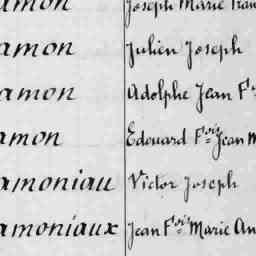 amon Joseph Marie Fran
amon Julien Joseph
amon Adolphe Jean F
amon Edouard Fçois Jean M
amoniau Victor Joseph
amoniaux Jean Fçois Marie An